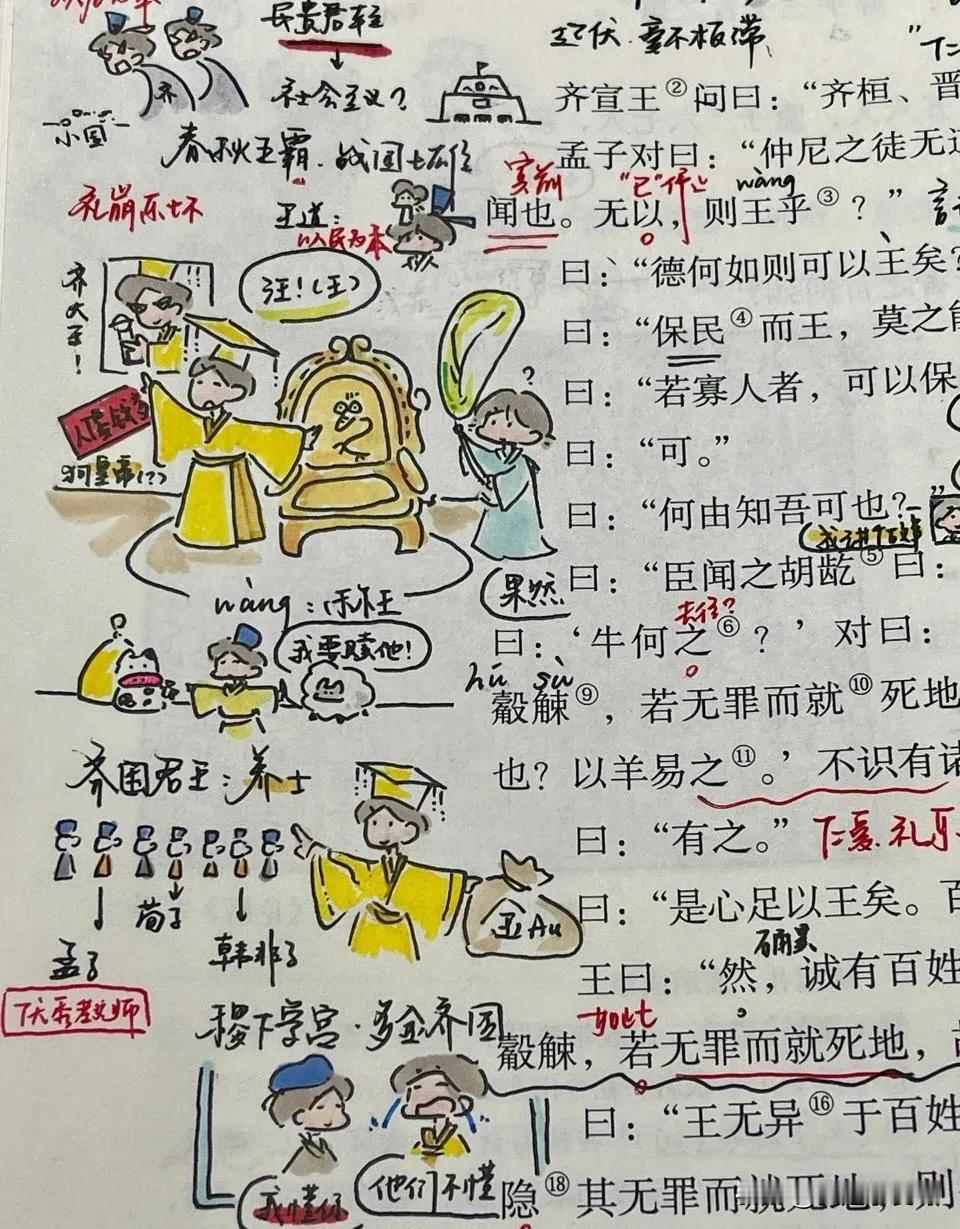 民贵君轻
社会主义？
小国
春秋五霸．战国七雄
礼崩乐坏
王道：
以民为本
齐大王！
汪！(王)
狗皇帝(??)
wàng：称王
我要赎他！
齐国君王：养士
孟子
荀子
韩非子
优秀教师
金Au
稷下学宫．多金齐国
我懂你
他们不懂
齐宣王②问曰：“齐桓、晋
孟子对曰：“仲尼之徒无
“已”停止
wàng
闻也。无以，则王乎③？”
曰：“德何如则可以王矣？
曰：“保民④而王，莫之能
曰：“若寡人者，可以保
曰：“可。”
曰：“何由知吾可也？”
果然
曰：“臣闻之胡龁⑤曰：
去往？
曰：‘牛何之⑥？’对曰：
hú sù
觳觫⑨，若无罪而就⑩死地
也？以羊易之⑪。’不识有诸
曰：“有之。”
仁爱．礼
曰：“是心足以王矣。百
确实
王曰：“然，诚有百姓
觳觫，若无罪而就死地，故
曰：“王无异⑯于百姓
隐⑱其无罪而就死地，则